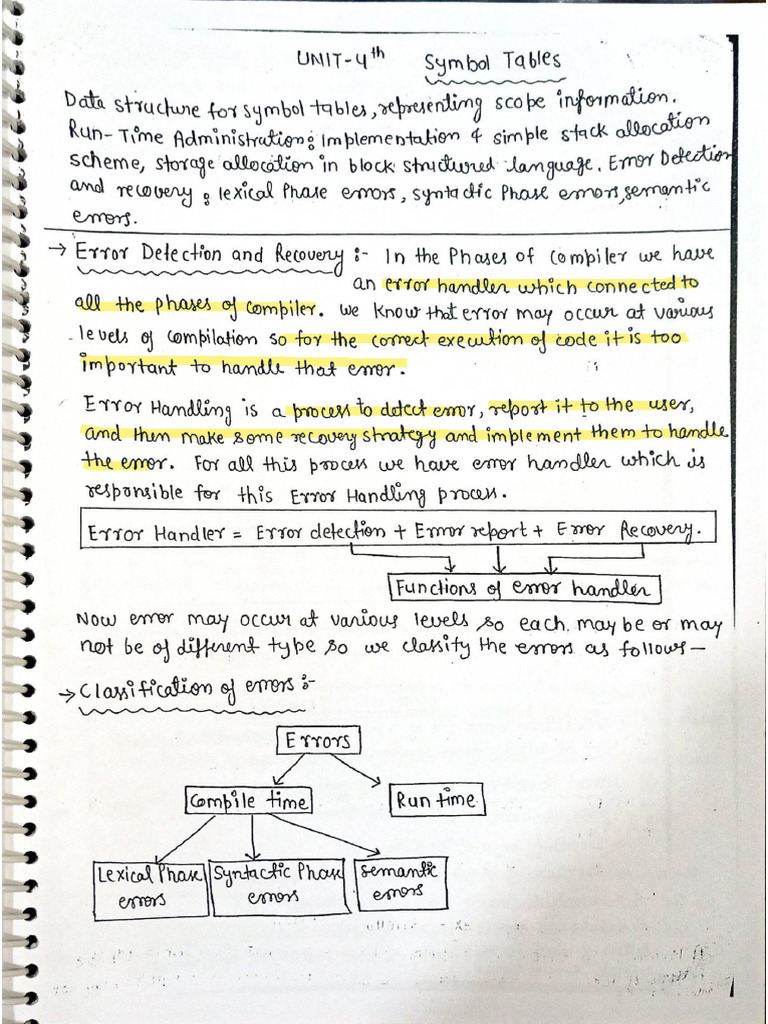 UNIT-4th Symbol Tables
Data structure for symbol tables, representing scope information.
Run-Time Administration: Implementation of simple stack allocation
scheme, storage allocation in block structured language. Error Detection
and recovery: lexical Phase errors, syntactic Phase errors, semantic
errors.
→ Error Detection and Recovery :- In the Phases of compiler we have
an error handler which connected to
all the phases of compiler. We know that error may occur at various
levels of compilation so for the correct execution of code it is too
important to handle that error.
Error Handling is a process to detect error, report it to the user,
and then make some recovery strategy and implement them to handle
the error. For all this process we have error handler which is
responsible for this Error Handling process.
Error Handler = Error detection + Error report + Error Recovery.
Functions of error handler
Now error may occur at various levels so each may be or may
not be of different type so we classify the errors as follows —
→ Classification of errors :-
Errors
Compile time Run time
Lexical Phase Syntactic Phase semantic
errors errors errors